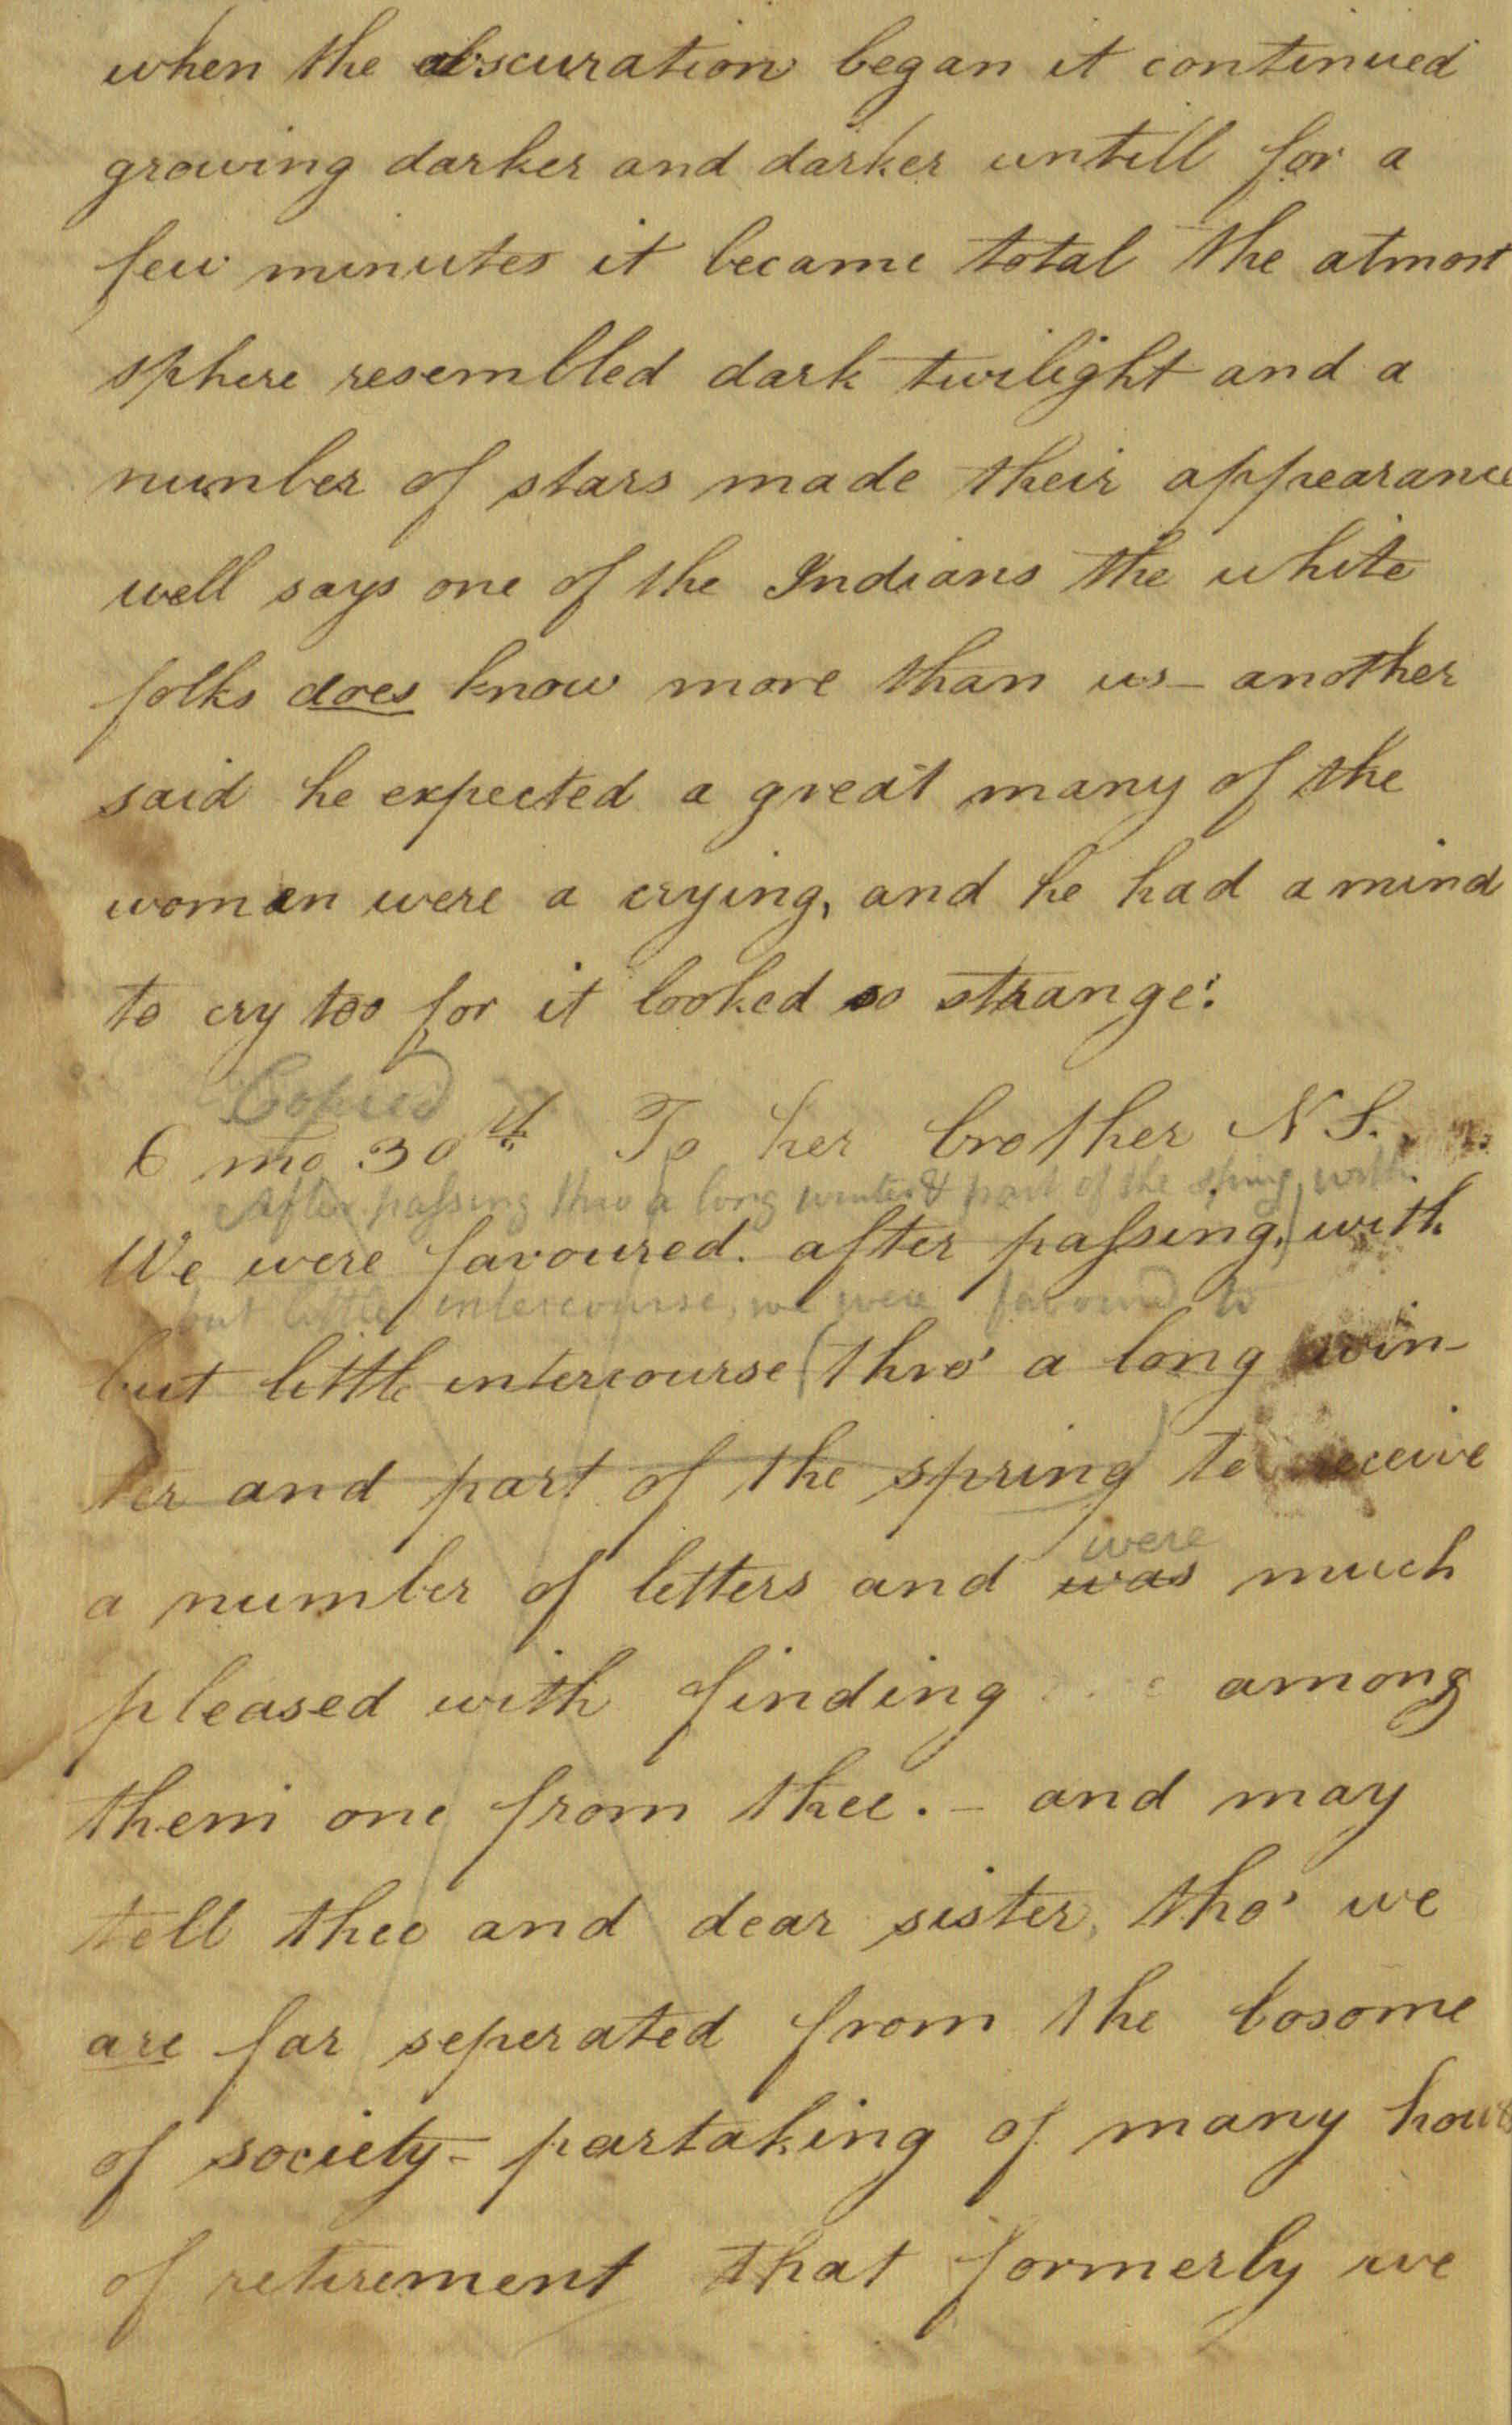 when the obscuration began it continued
growing darker and darker untill for a
few minutes it became total the atmost
sphere resembled dark twilight and a
number of stars made their appearance
well says one of the Indians the white
folks does know more than us - another
said he expected a great many of the
women were a crying, and he had a mind
to cry too for it looked so strange.
Copied
6 mo 30th To her brother N S.
After passing thro a long winter & part of the spring, with
We were favoured after passing, with
but little intercourse, we were favoured to
but little intercourse (thro' a long win-
ter and part of the spring) to receive
were
a number of letters and was much
pleased with finding among
them one from thee. - and may
tell thee and dear sister, tho' we
are far seperated from the bosome
of society - partaking of many hours
of retirement that formerly we